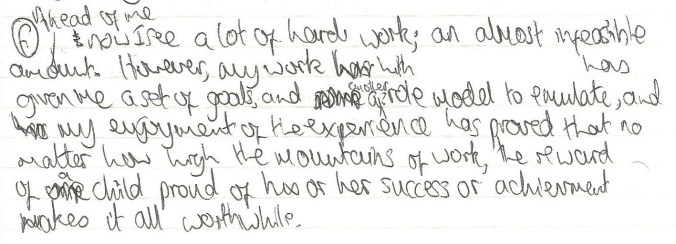 Ahead of me
F I now I see a lot of hard work; an almost infeasible
amount. However, my work with has
given me a set of goals, and another a role model to emulate, and
my enjoyment of the experience has proved that no
matter how high the mountains of work, the reward
of a child proud of his or her success or achievement
makes it all worthwhile.